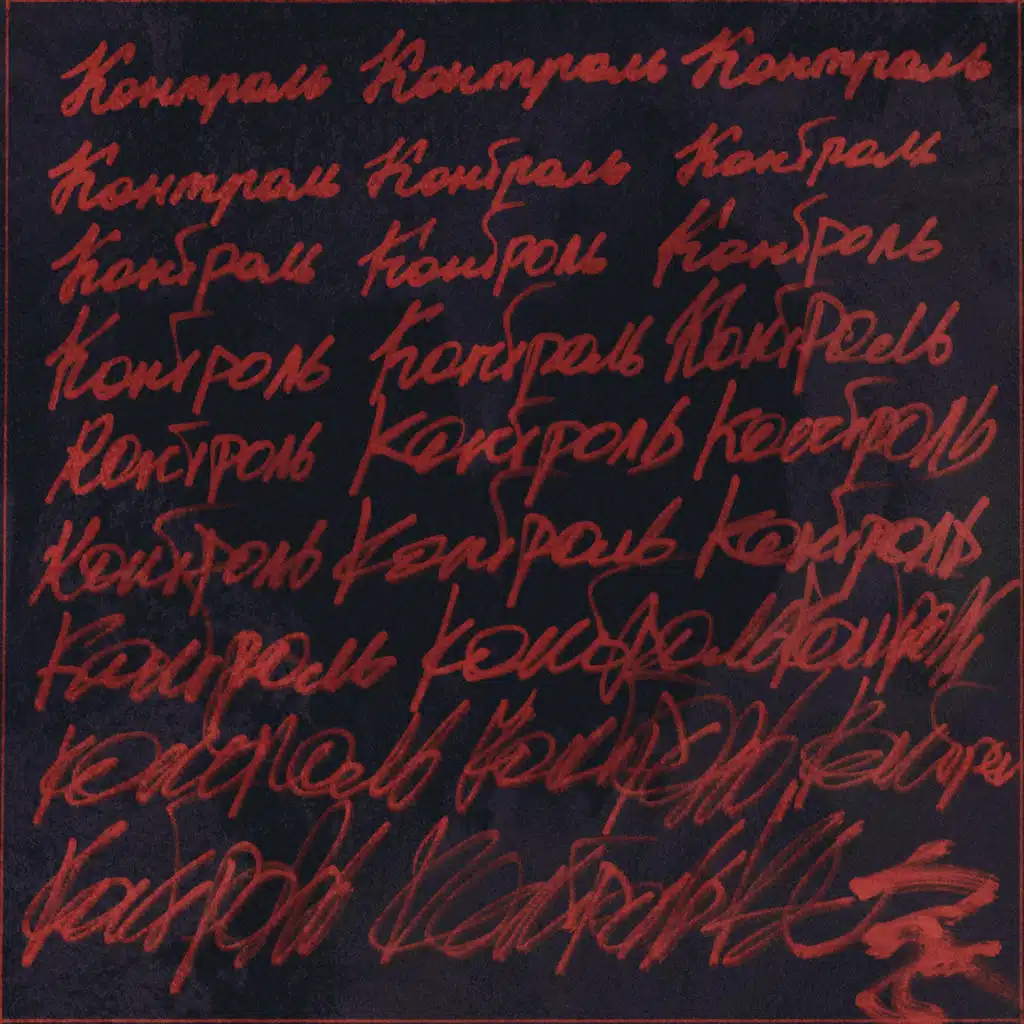 Контроль Контроль Контроль
Контроль Контроль Контроль
Контроль Контроль Контроль
Контроль Контроль Контроль
Контроль Контроль Контроль
Контроль Контроль Контроль
Контроль Контроль Контроль
Контроль Контроль